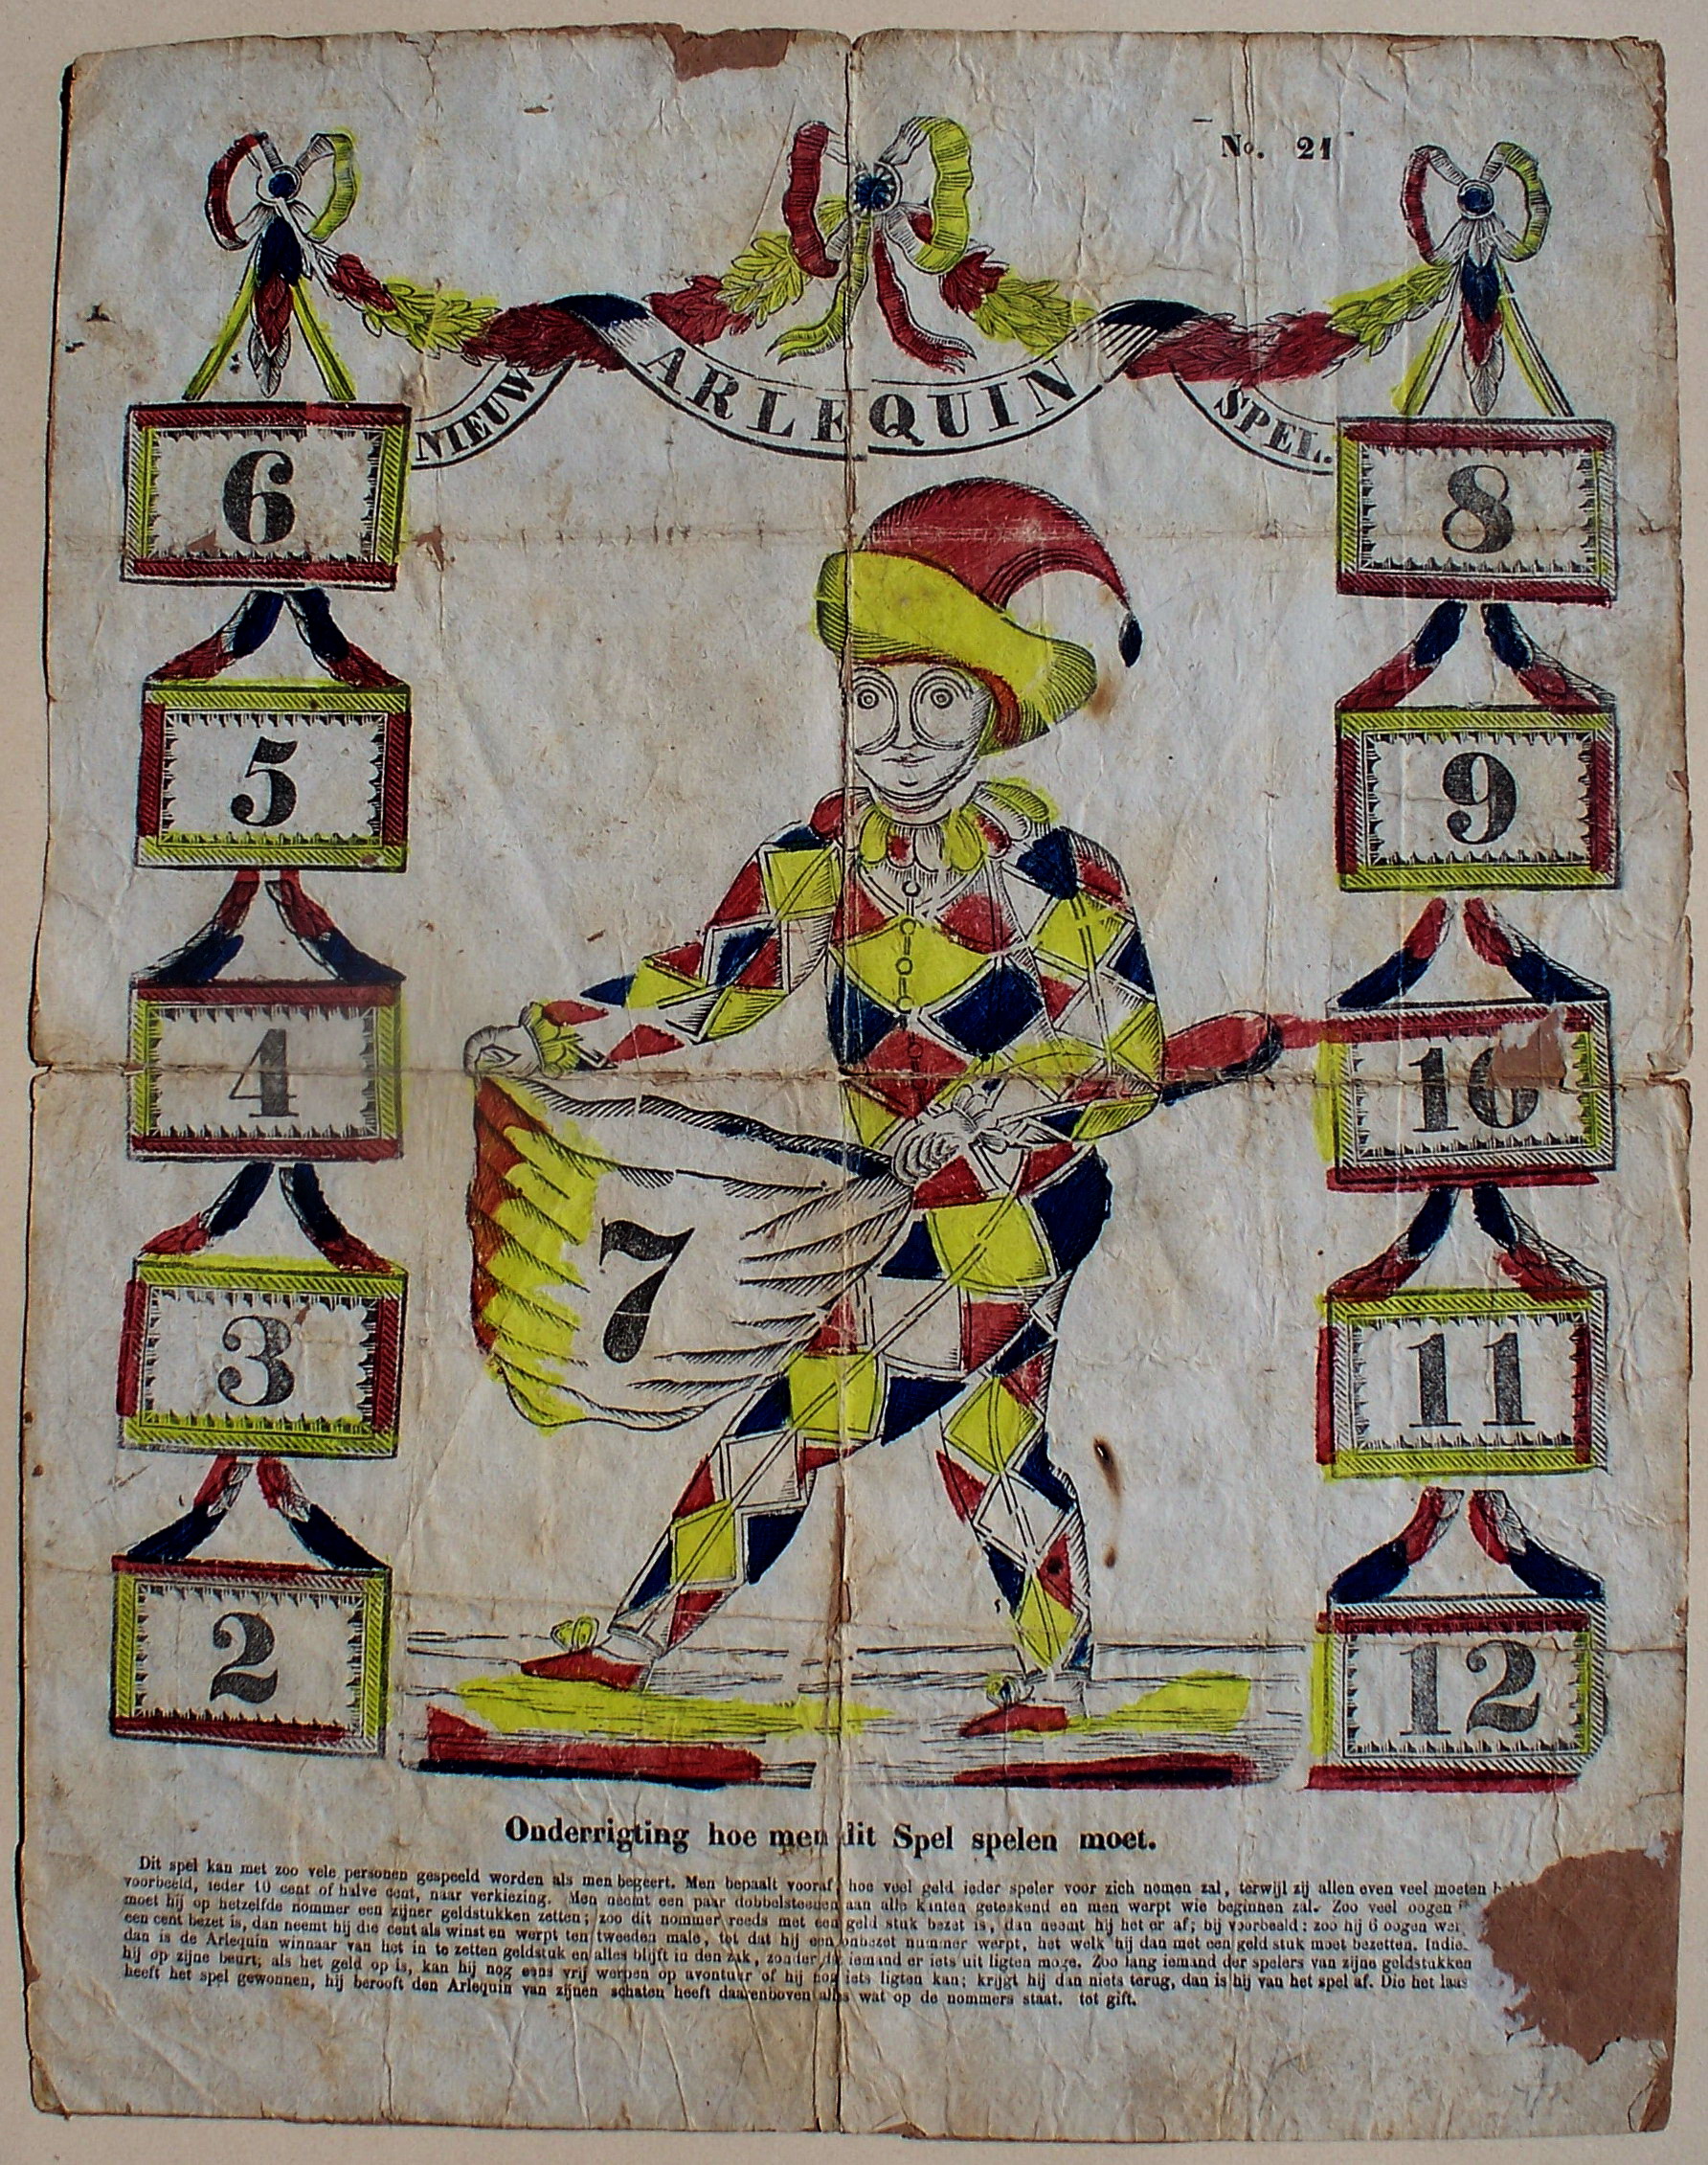 No. 21
NIEUW ARLEQUIN SPEL.
6
8
5
9
4
10
7
3
11
2
12
Onderrigting hoe men dit Spel spelen moet.
Dit spel kan met zoo vele personen gespeeld worden als men begeert. Men bepaalt vooraf hoe veel geld ieder speler voor zich nemen zal, terwijl zij allen even veel moeten
voorbeeld, ieder 10 cent of halve cent, naar verkiezing. Men neemt een paar dobbelsteenen aan alle kanten geteekend en men werpt wie beginnen zal. Zoo veel oogen
moet hij op hetzelfde nommer een zijner geldstukken zetten; zoo dit nommer reeds met een geld stuk bezet is, dan neemt hij het er af; bij voorbeeld: zoo hij 6 oogen
een cent bezet is, dan neemt hij die cent als winst en werpt ten tweeden male, tot dat hij een onbezet nummer werpt, het welk hij dan met een geld stuk moet bezetten.
dan is de Arlequin winnaar van het in te zetten geldstuk en alles blijft in den zak, zonder iemand er iets uit ligten moge. Zoo lang iemand der spelers van zijne geldstukken
hij op zijne beurt; als het geld op is, kan hij nog eens vrij werpen op avontuur of hij nog iets ligten kan; krijgt hij dan niets terug, dan is hij van het spel af. Die het
heeft het spel gewonnen, hij berooft den Arlequin van zijnen schaten heeft daarenboven alles wat op de nommers staat. tot gift.